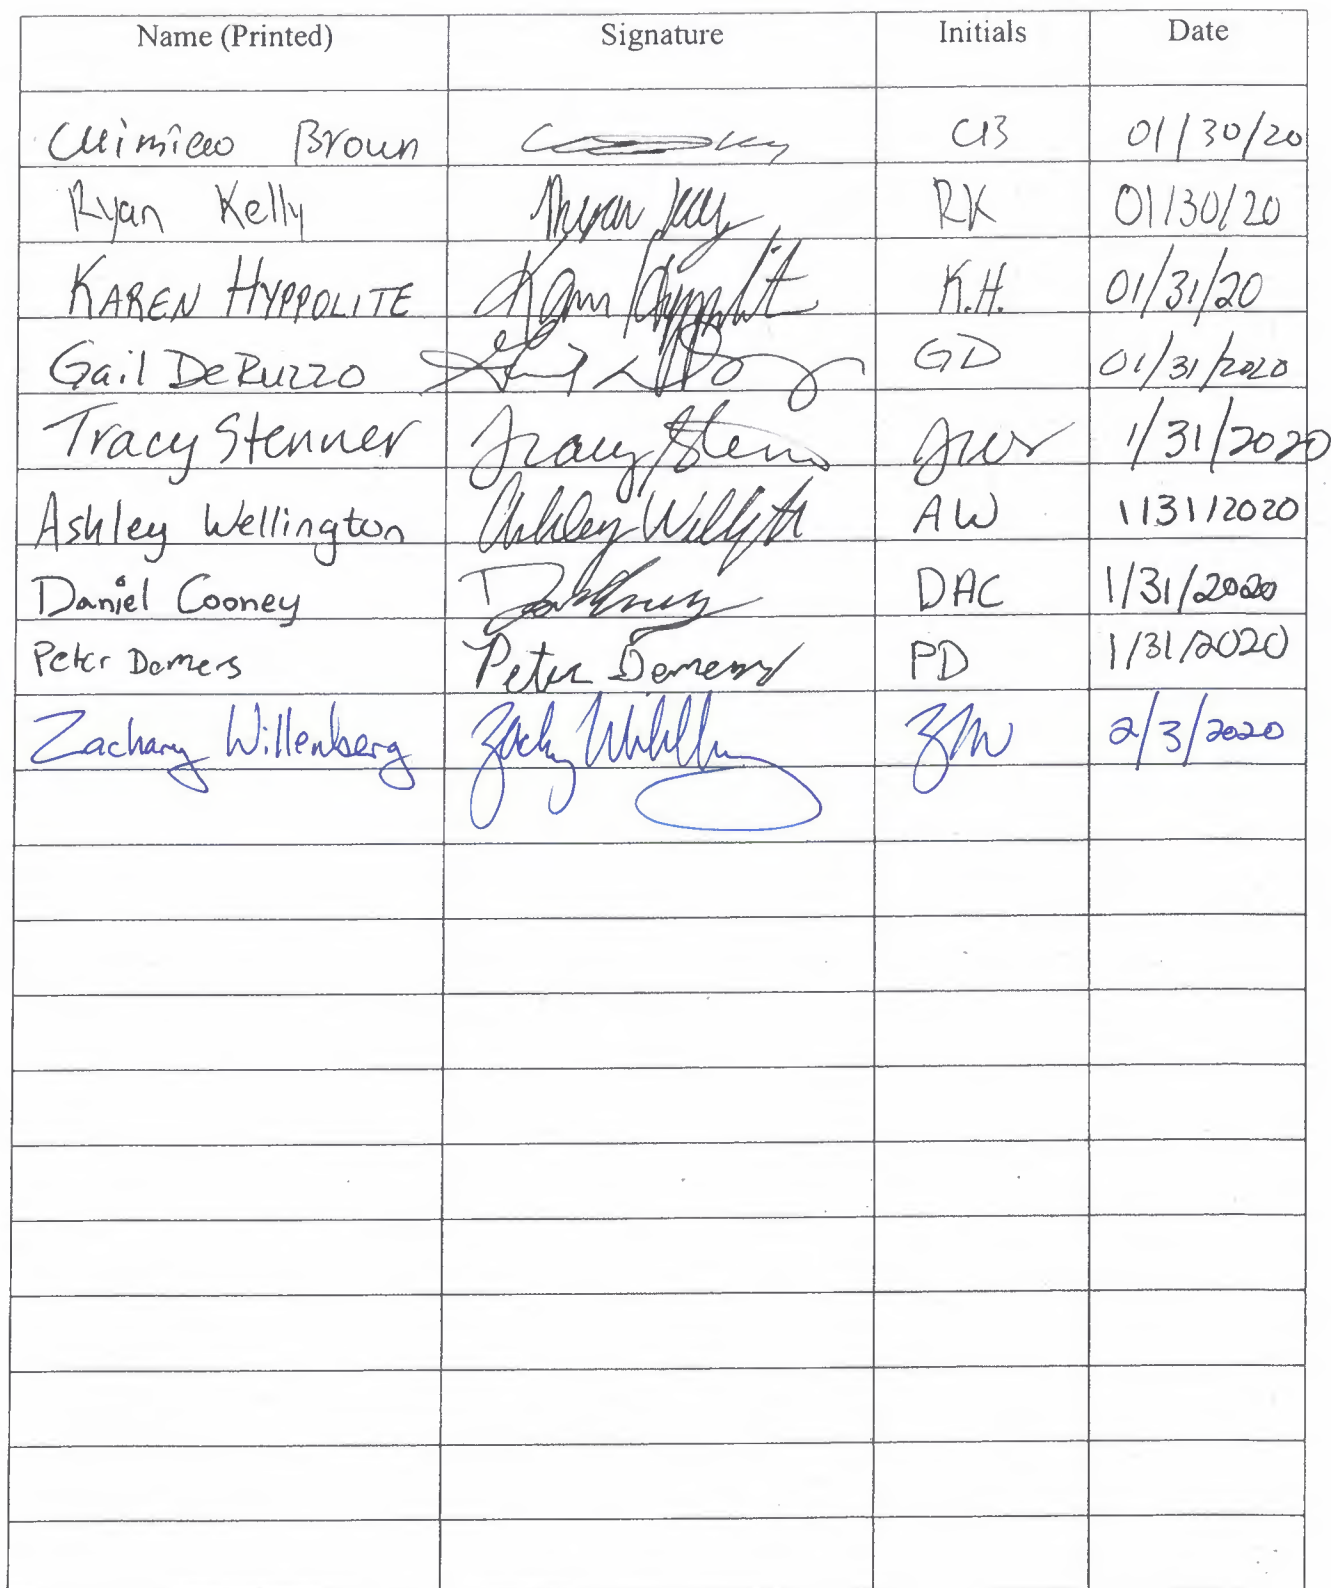 Name (Printed) Signature Initials Date
Brown CB 01/30/20
Ryan Kelly Ryan Kelly RK 01/30/20
KAREN HYPPOLITE Karen Hyppolite K.H. 01/31/20
Gail DeRuzzo GD 01/31/2020
Tracy Stenner Tracy Stenn 1/31/2020
Ashley Wellington Ashley AW 1/31/2020
Daniel Cooney DAC 1/31/2020
Peter Demers Peter Demers PD 1/31/2020
Zachary Willenberg ZMW 2/3/2020